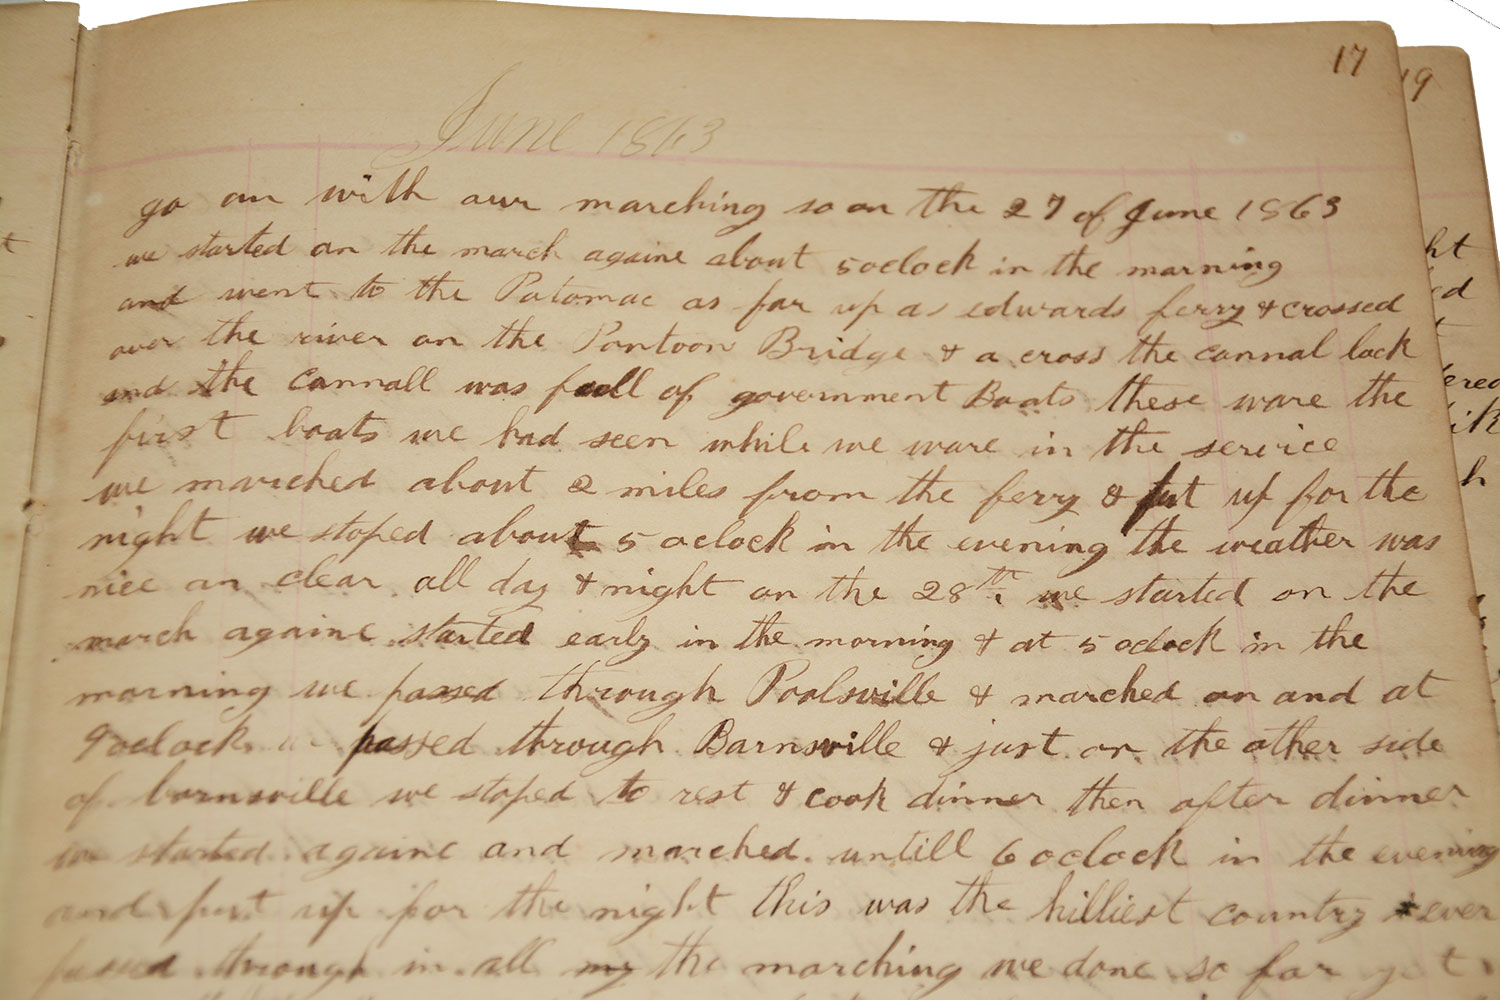 17
19
June 1863
go on with our marching so on the 27 of June 1863
we started on the march againe about 5 oclock in the morning
and went to the Potomac as far up as edwards ferry & crossed
over the river on the Pontoon Bridge & a cross the cannal lock
and the cannall was full of government Boats these ware the
first boats we had seen while we ware in the service
we marched about 2 miles from the ferry & put up for the
night we stoped about 5 oclock in the evening the weather was
nice an clear all day & night on the 28th we started on the
march againe started early in the morning & at 5 oclock in the
morning we passed through Poolsville & marched on and at
9 oclock passed through Barnsville & just on the other side
of barnsville we stoped to rest & cook dinner then after dinner
we started againe and marched untill 6 oclock in the evening
and put up for the night this was the hilliest country ever
passed through in all my the marching we done so far yet